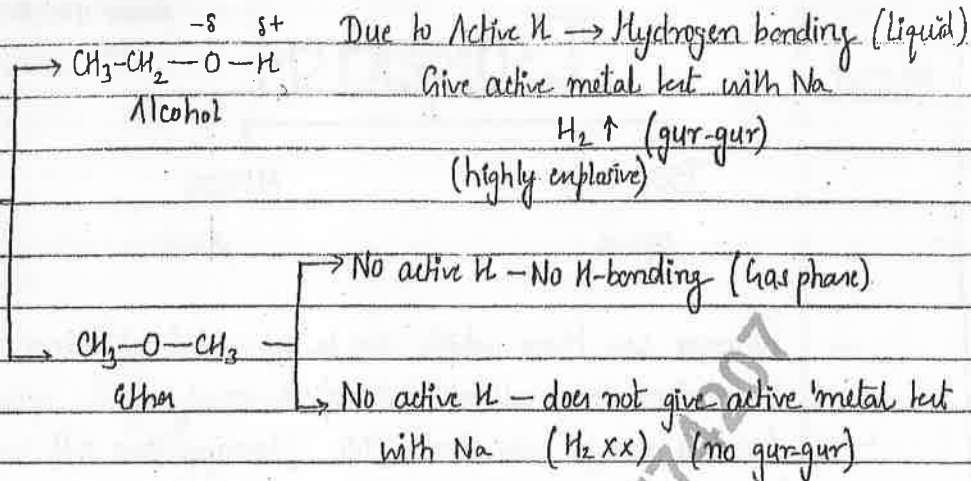 -δ δ+
→ CH₃-CH₂—O—H Due to Active H → Hydrogen bonding (Liquid)
Alcohol Give active metal test with Na
H₂ ↑ (gur-gur)
(highly explosive)
→ No active H - No H-bonding (Gas phase)
→ CH₃—O—CH₃
Ether
→ No active H - does not give active metal test
with Na (H₂ xx) (no gur-gur)
74207